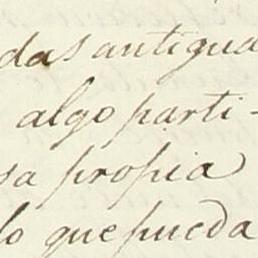 das antigua
algo parti-
sa propia
lo que pueda